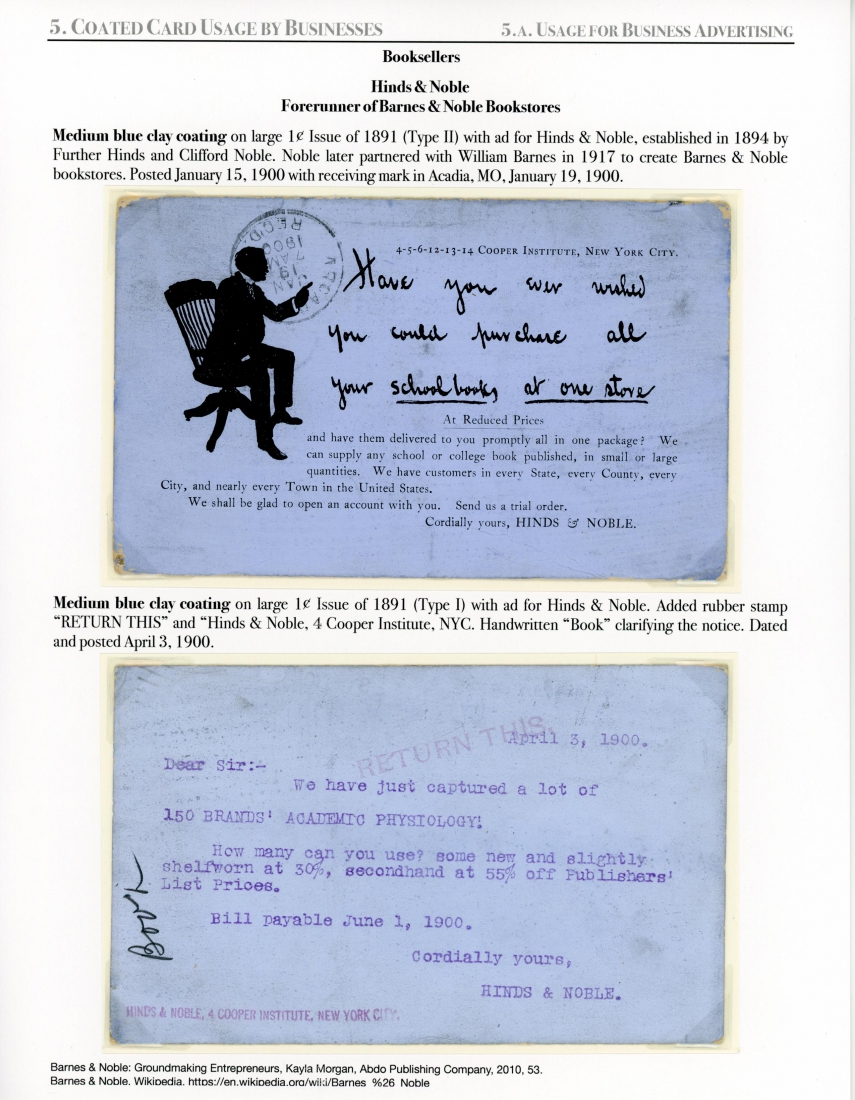 5. COATED CARD USAGE BY BUSINESSES
5.A. USAGE FOR BUSINESS ADVERTISING
Booksellers
Hinds & Noble
Forerunner of Barnes & Noble Bookstores
Medium blue clay coating on large 1¢ Issue of 1891 (Type II) with ad for Hinds & Noble, established in 1894 by
Further Hinds and Clifford Noble. Noble later partnered with William Barnes in 1917 to create Barnes & Noble
bookstores. Posted January 15, 1900 with receiving mark in Acadia, MO, January 19, 1900.
JAN
19
7 AM
1900
REC'D.
4-5-6-12-13-14 COOPER INSTITUTE, NEW YORK CITY.
Have you ever wished
you could purchase all
your school books at one store
At Reduced Prices
and have them delivered to you promptly all in one package? We
can supply any school or college book published, in small or large
quantities. We have customers in every State, every County, every
City, and nearly every Town in the United States.
We shall be glad to open an account with you. Send us a trial order.
Cordially yours, HINDS & NOBLE.
Medium blue clay coating on large 1¢ Issue of 1891 (Type I) with ad for Hinds & Noble. Added rubber stamp
“RETURN THIS” and “Hinds & Noble, 4 Cooper Institute, NYC. Handwritten “Book” clarifying the notice. Dated
and posted April 3, 1900.
RETURN THIS
April 3, 1900.
Dear Sir:-
We have just captured a lot of
150 BRANDS' ACADEMIC PHYSIOLOGY!
How many can you use? some new and slightly
shelfworn at 30%, secondhand at 55% off Publishers'
List Prices.
Bill payable June 1, 1900.
Cordially yours,
HINDS & NOBLE.
Book
HINDS & NOBLE, 4 COOPER INSTITUTE, NEW YORK CITY.
Barnes & Noble: Groundmaking Entrepreneurs, Kayla Morgan, Abdo Publishing Company, 2010, 53.
Barnes & Noble. Wikipedia. https://en.wikipedia.org/wiki/Barnes_%26_Noble